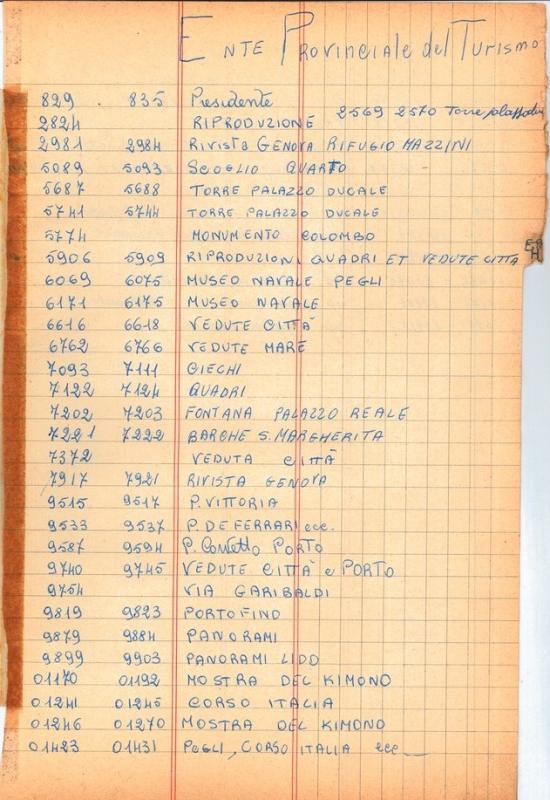 ENTE PROVINCIALE del TURISMO
829 835 Presidente
2569 2570 Torre
2824 RIPRODUZIONE
2981 2984 RIVISTA GENOVA RIFUGIO MAZZINI
5089 5093 SCOGLIO QUARTO
5687 5688 TORRE PALAZZO DUCALE
5741 5744 TORRE PALAZZO DUCALE
5774 MONUMENTO COLOMBO
5906 5909 RIPRODUZIONI QUADRI ET VEDUTE CITTA
6069 6075 MUSEO NAVALE PEGLI
6171 6175 MUSEO NAVALE
6616 6618 VEDUTE CITTÀ
6762 6766 VEDUTE MARE
7093 7111 CIECHI
7122 7124 QUADRI
7202 7203 FONTANA PALAZZO REALE
7221 7222 BARCHE S. MARGHERITA
7372 VEDUTA CITTÀ
7917 7921 RIVISTA GENOVA
9515 9517 P. VITTORIA
9533 9537 P. DE FERRARI ecc.
9587 9594 P. PORTO
9740 9745 VEDUTE CITTÀ e PORTO
9754 VIA GARIBALDI
9819 9823 PORTOFINO
9879 9884 PANORAMI
9899 9903 PANORAMI LIDO
01170 01192 MOSTRA DEL KIMONO
01241 01245 CORSO ITALIA
01246 01270 MOSTRA DEL KIMONO
01423 01431 PEGLI, CORSO ITALIA ecc